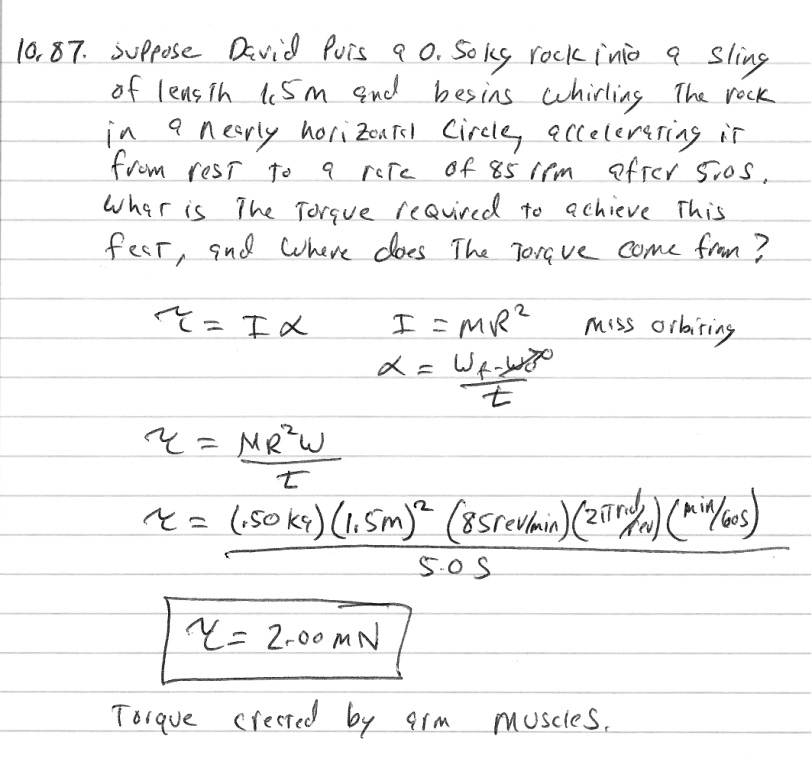 10.87. Suppose David puts a 0.50kg rock into a sling
of length 1.5m and begins whirling the rock
in a nearly horizontal circle, accelerating it
from rest to a rate of 85 rpm after 5.0s.
What is the torque required to achieve this
feat, and where does the torque come from?
τ = Iα I = MR² mass orbiting
α = (ωf - ω0→0)/t
τ = MR²ω/t
τ = (.50 kg)(1.5m)² (85rev/min)(2π rad/rev)(min/60s)
5.0 s
τ = 2.00 mN
Torque created by arm muscles.